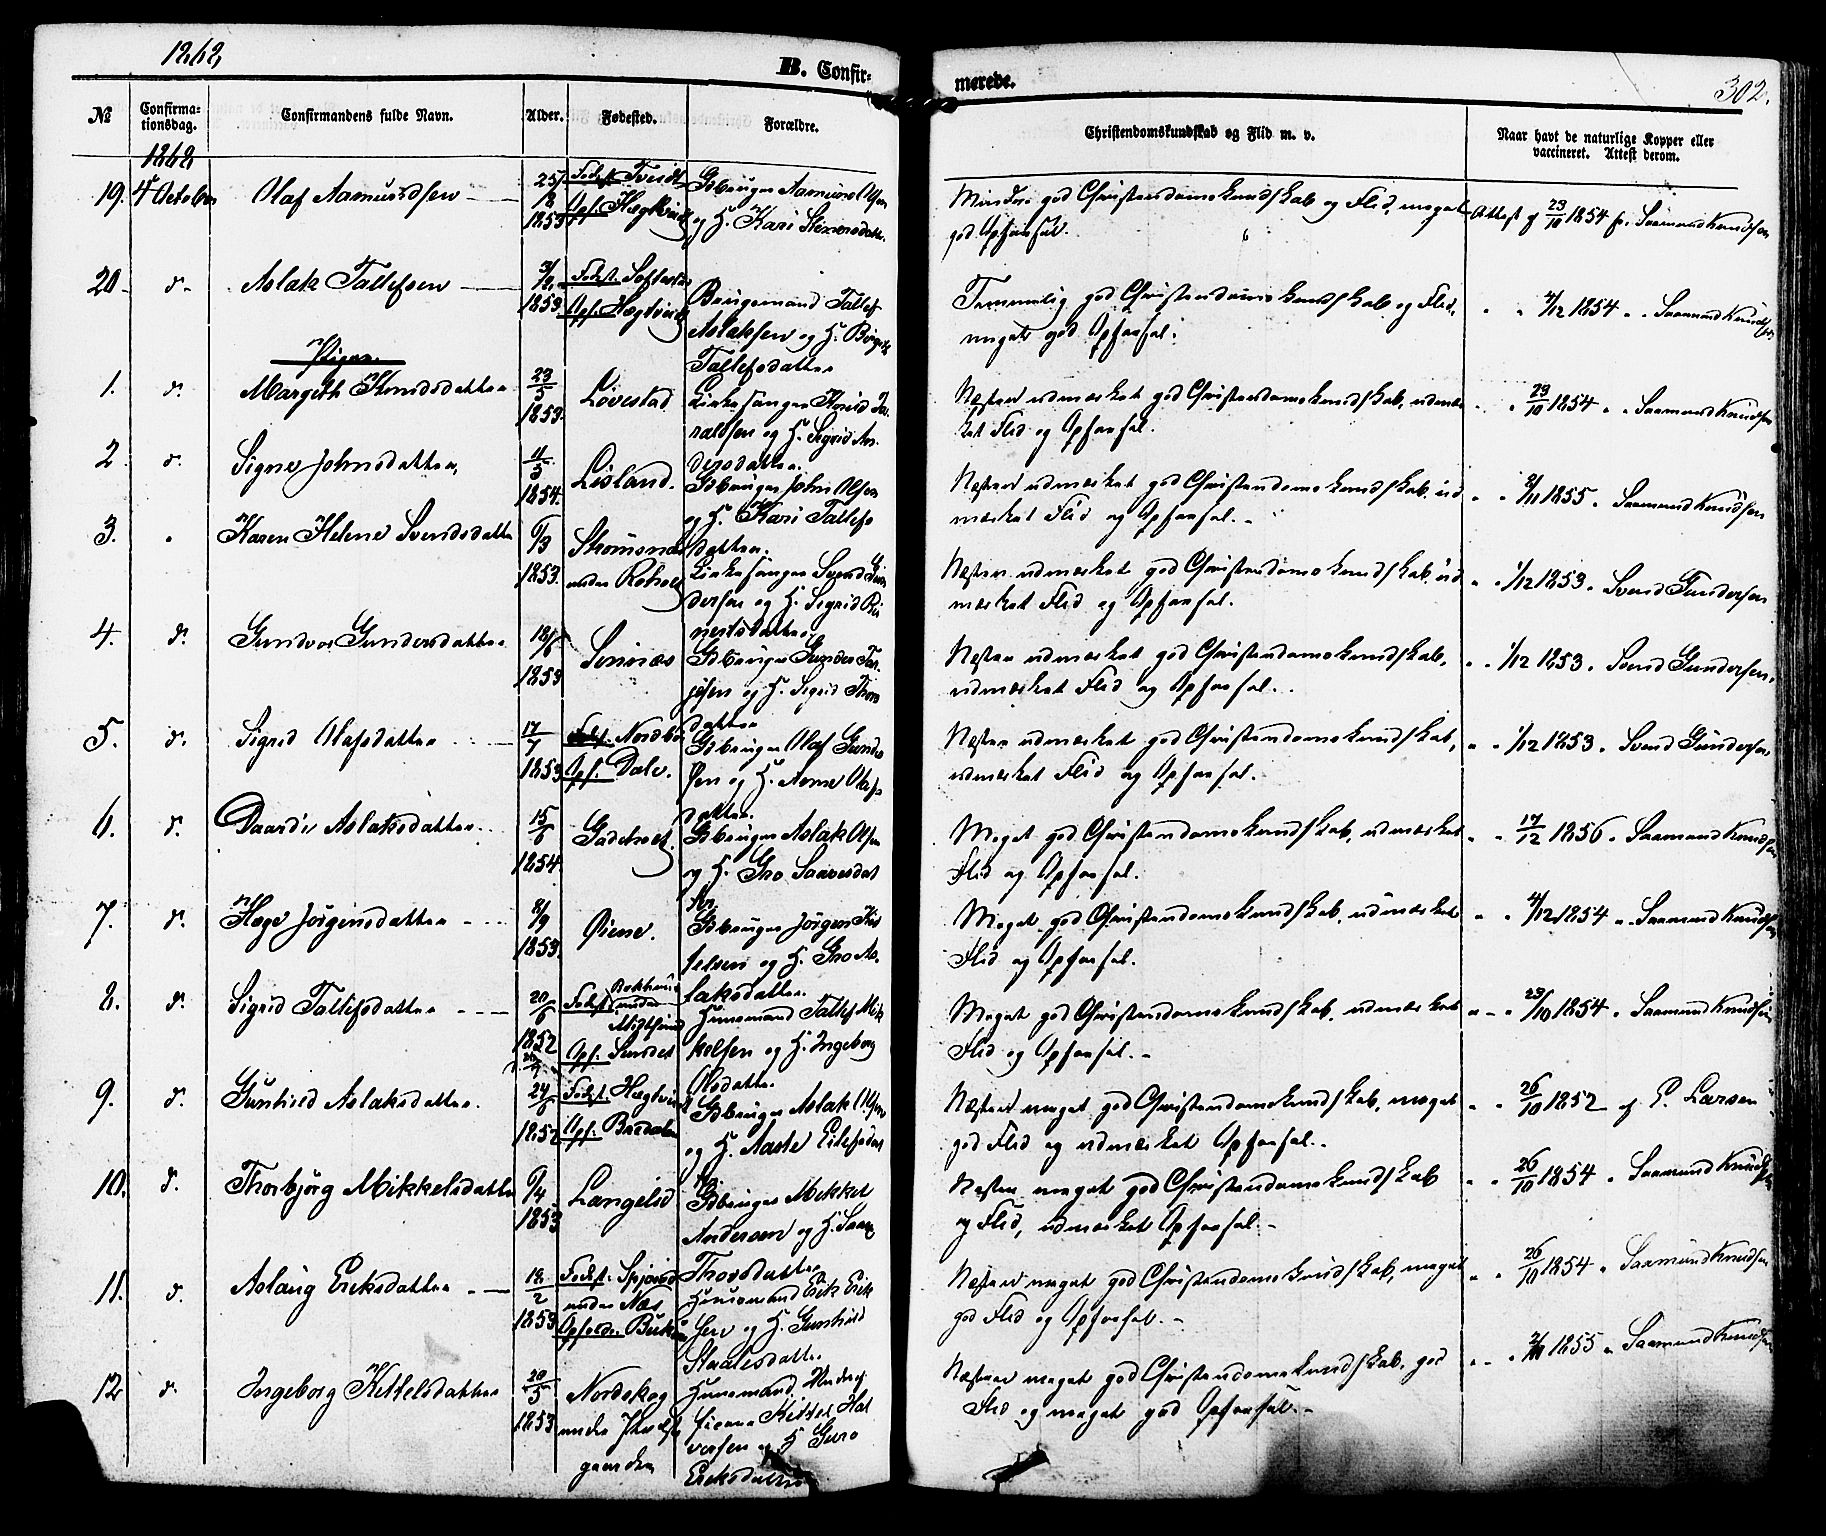 1868
B. Confir-
merede.
302.
№
Confirma-
tionsdag.
Confirmandens fulde Navn.
Alder.
Fødested.
Forældre.
Christendomskundskab og Flid m. v.
Naar havt de naturlige Kopper eller
vaccineret. Attest derom.
1868
19. 4 October Olaf Aamundsen 25/ 1853 Fødest. Tveidt Opf. Hægtveit Gbruger Aamund Olsen
og H. Kari Stenersdatter
Mindre god Christendomskundskab og Flid, meget
god Opførsel.
Attest af 23/10 1854 fr. Saamund Knudsen
20 d. Aslak Tallefsen 3/ 1853 Fødest. Opf. Hægtveit Brugsmand Tallef
Aslaksen og H. Børgit
Tallefsdatter
Temmelig god Christendomskundskab og Flid,
meget god Opførsel.
" " 4/12 1854 " " Saamund Knudsen
Piger.
1. d. Margith Knudsdatter 23/5 1853. Løvestad Kirkesanger Knud Ta-
raldsen og H. Sigrid An-
dersdatter.
Næsten udmærket god Christendomskundskab, udmær-
ket Flid og Opførsel.
" " 23/10 1854 " " Saamund Knudsen
2 d. Signe Johnsdatter, 11/5 1854. Lisland. Gbruger John Olsen
og H. Kari Tallefs
datter.
Næsten udmærket god Christendomskundskab, ud
mærket Flid og Opførsel.
" " 2/11 1855 " Saamund Knudsen
3. " Karen Helene Svendsdatter 6/3 1853. Strømsnes under Kirkesanger Svend Gun
dersen og H. Sigrid Rei
nertsdatter
Næsten udmærket god Christendomskundskab, ud
mærket Flid og Opførsel.
" " 1/12 1853 " Svend Gundersen
4. d. Gundvor Gundersdatter 18/6 1853 Gbruger Gunder Tar-
jesen og H. Sigrid
datter
Næsten udmærket god Christendomskundskab,
udmærket Flid og Opførsel.
" " 1/12 1853 " Svend Gundersen.
5. d. Sigrid Olafsdatter 17/7 1853 Fødest. Nordbø Opf. Dale. Gbruger Olaf Gunder
sen og H. Anne Olafs
datter.
Næsten udmærket god Christendomskundskab,
udmærket Flid og Opførsel.
" " 1/12 1853 " Svend Gundersen
6. d. Daardi Aslaksdatter. 15/6 1854. Gbruger Aslak Olsen
og H. Gro Saavesdat
ter
Meget god Christendomskundskab, udmærket
Flid og Opførsel.
" " 17/12 1856 " Saamund Knudsen
7. d. Hæge Jørgensdatter 8/9 1853. Øiene. Gbruger Jørgen
og H. Gro As-
laksdatter.
Meget god Christendomskundskab, udmærket
Flid og Opførsel.
" " 4/12 1854 " Saamund Knudsen
8. d. Sigrid Tallefsdatter 20/6 1852 Fødest. under Opf. Sundet Huusmand Tallef Mik
kelsen og H. Ingeborg
Olsdatter
Meget god Christendomskundskab, udmærket
Flid og Opførsel.
" " 23/10 1854 " Saamund Knudsen
9. d. Gunhild Aslaksdatter. 24/6 1852 Fødest. Hægtveit Opf. Gbruger Aslak Olsen
og H. Aaste Eilefsdat
ter
Næsten meget god Christendomskundskab, meget
god Flid og udmærket Opførsel.
" " 26/10 1852 af E. Larsen
10. d. Thorbjørg Mikkelsdatter 6/4 1853 Langelid Gbruger Mikkel
Andersen og H.
Thorsdatter
Næsten meget god Christendomskundskab
og Flid, udmærket Opførsel.
" " 26/10 1854 " Saamund Knudsen
11. d. Aslaug Eriksdatter 12/2 1853 Fødest. under Næs Opfødt. Huusmand Erik Erik
sen og H. Gunhild
Staalesdatter.
Næsten meget god Christendomskundskab, meget
god Flid og Opførsel.
" " 26/10 1854 " Saamund Knudsen
12 d. Ingeborg Kittelsdatter 20/5 1853 Nordskog under gaarden Huusmand, Underof-
ficeer Kittel Hal
vorsen og H Guro
Eriksdatter
Næsten meget god Christendomskundskab, god
Flid og meget god Opførsel.
" " 2/11 1855 " Saamund Knudsen